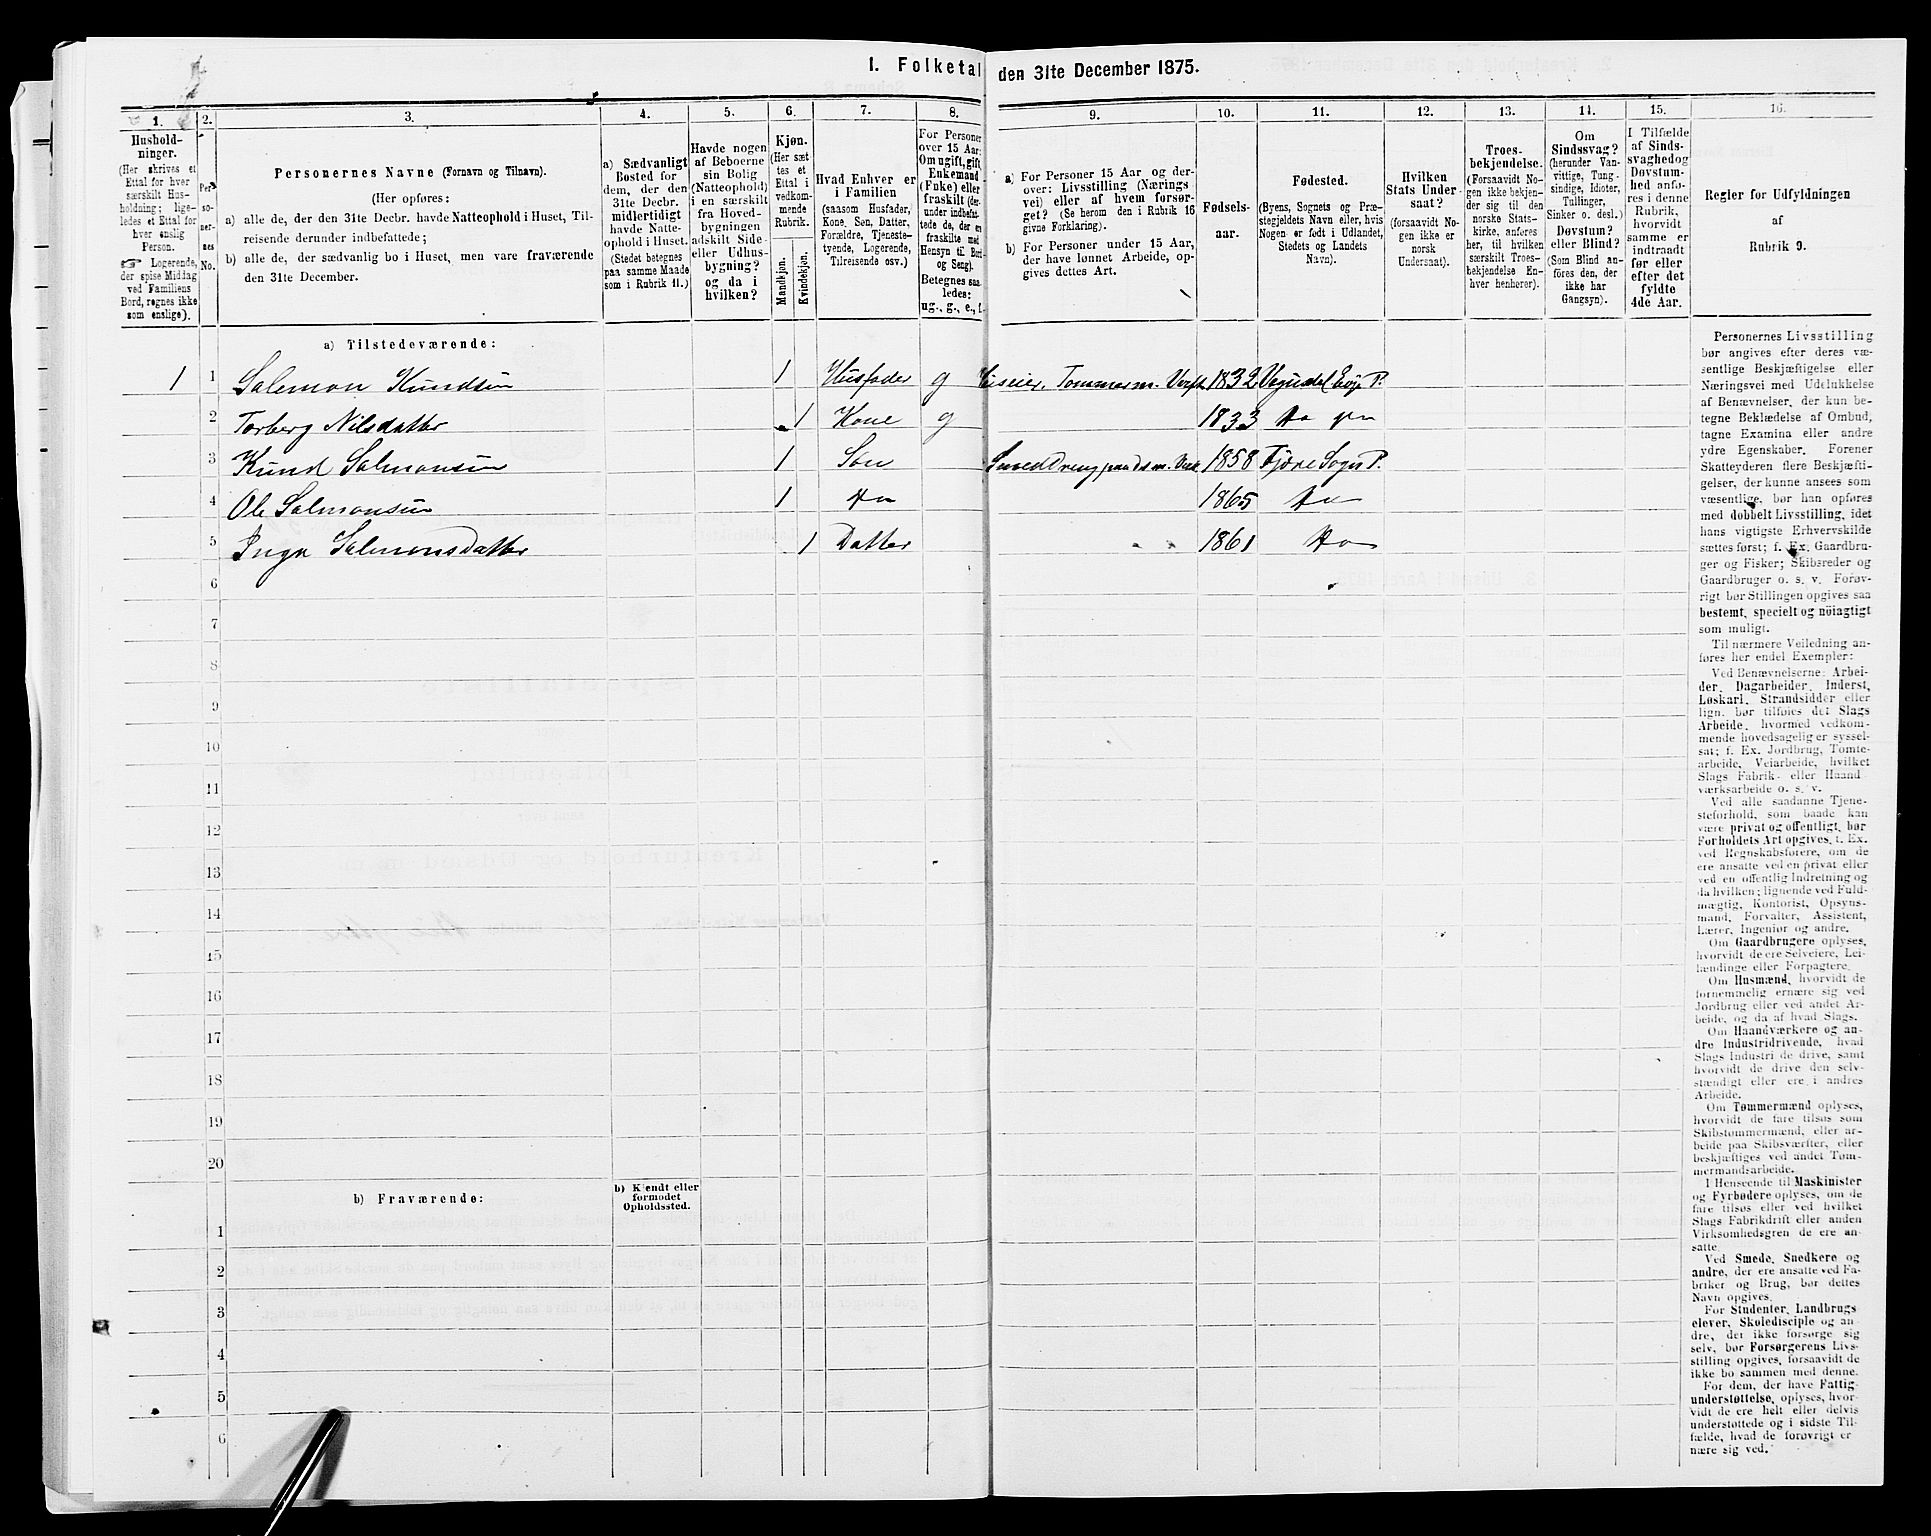 I. Folketal den 31te December 1875.
1. 2. 3. 4. 5. 6. 7. 8. 9. 10. 11. 12. 13. 14. 15. 16.
Hushold-
ninger.
(Her skrives et
Ettal for hver
særskilt Hus-
holdning; lige-
ledes et Ettal for
hver enslig
Person.
☞ Logerende,
der spise Middag
ved Familiens
Bord, regnes ikke
som enslige).
Per-
so-
ner-
nes
No.
Personernes Navne (Fornavn og Tilnavn).
(Her opføres:
a) alle de, der den 31te Decbr. havde Natteophold i Huset, Til-
reisende derunder indbefattede;
b) alle de, der sædvanlig bo i Huset, men vare fraværende
den 31te December.
a) Sædvanligt
Bosted for
dem, der den
31te Decbr.
midlertidigt
havde Natte-
ophold i Huset.
(Stedet betegnes
paa samme Maade
som i Rubrik 11.)
Havde nogen
af Beboerne
sin Bolig
(Natteophold)
i en særskilt
fra Hoved-
bygningen
adskilt Side-
eller Udhus-
bygning?
og da i
hvilken?
Kjøn.
(Her sæt-
tes et
Ettal i
vedkom-
mende
Rubrik.
Mandkjøn.
Kvindekjøn.
Hvad Enhver er
i Familien
(saasom Husfader,
Kone, Søn, Datter,
Forældre, Tjeneste-
tyende, Logerende,
Tilreisende osv.)
For Personer
over 15 Aar:
Om ugift, gift,
Enkemand
(Enke) eller
fraskilt (der-
under indbefat-
tede de, der er
fraskilte med
Hensyn til Bord
og Seng).
Betegnes saa-
ledes:
ug., g., e., f.
a) For Personer 15 Aar og der-
over: Livsstilling (Nærings
vei) eller af hvem forsør-
get? (Se herom den i Rubrik 16
givne Forklaring).
b) For Personer under 15 Aar,
der have lønnet Arbeide, op-
gives dettes Art.
Fødsels-
aar.
Fødested.
(Byens, Sognets og Præ-
stegjeldets Navn eller, hvis
Nogen er født i Udlandet,
Stedets og Landets
Navn).
Hvilken
Stats Under-
saat?
(forsaavidt No-
gen ikke er
norsk
Undersaat).
Troes-
bekjendelse.
(Forsaavidt No-
gen ikke bekjen-
der sig til den
norske Stats-
kirke, anføres
her, til hvilken
særskilt Troes-
bekjendelse En-
hver henhører).
Om
Sindssvag?
(herunder Van-
vittige, Tung-
sindige, Idioter,
Tullinger,
Sinker o. desl.)
Døvstum?
eller Blind?
(Som Blind an-
føres den, der
ikke har
Gangsyn).
I Tilfælde
af Sinds-
svaghed og
Døvstum-
hed anfø-
res i denne
Rubrik,
hvorvidt
samme er
indtraadt
før eller
efter det
fyldte
4de Aar.
Regler for Udfyldningen
af
Rubrik 9.
a) Tilstedeværende:
1 1 Salemon Knudsen 1 Husfader g Huseier, Tømmerm. Verft 1832 Vegusdal Evje P.
2 Torberg Nilsdatter 1 Kone g 1833 Do
3 Knud Salmonsen 1 Søn 1858 Fjære Sogn P.
4 Ole Salmonsen 1 Do 1865 Do
5 Inga Salmonsdatter 1 Datter 1861 Do
6
7
8
9
10
11
12
13
14
15
16
17
18
19
20
b) Fraværende:
b) Kjendt eller
formodet
Opholdssted.
1
2
3
4
5
6
Personernes Livsstilling
bør angives efter deres væ-
sentlige Beskjæftigelse eller
Næringsvei med Udelukkelse
af Benævnelser, der kun be-
tegne Beklædelse af Ombud,
tagne Examina eller andre
ydre Egenskaber. Forener
Skatteyderen flere Beskjæfti-
gelser, der kunne ansees som
væsentlige, bør han opføres
med dobbelt Livsstilling, idet
hans vigtigste Erhvervskilde
sættes først; f. Ex. Gaardbru-
ger og Fisker; Skibsreder og
Gaardbruger o. s. v. Forøv-
rigt bør Stillingen opgives saa
bestemt, specielt og nöiagtigt
som muligt.
Til nærmere Veiledning an-
føres her endel Exempler:
Ved Benævnelserne: Arbei-
der, Dagarbeider, Inderst,
Løskarl, Strandsidder eller
lign. bør tilføies det Slags
Arbeide, hvormed vedkom-
mende hovedsagelig er syssel-
sat; f. Ex. Jordbrug, Tomte-
arbeide, Veiarbeide, hvilket
Slags Fabrik- eller Haand
værksarbeide o. s. v.
Ved alle saadanne Tjene-
steforhold, som baade kan
være privat og offentligt, bør
Forholdets Art opgives, f. Ex.
ved Regnskabsførere, om de
ere ansatte ved en privat eller
ved en offentlig Indretning og
da hvilken; lignende ved Fuld-
mægtig, Kontorist, Opsyns-
mand, Forvalter, Assistent,
Lærer, Ingeniør og andre.
Om Gaardbrugere oplyses,
hvorvidt de ere Selveiere, Lei-
lændinge eller Forpagtere.
Om Husmænd, hvorvidt de
fornemmelig ernære sig ved
Jordbrug eller ved andet Ar-
beide, og da af hvad Slags.
Om Haandværkere og an-
dre Industridrivende, hvad
Slags Industri de drive, samt
hvorvidt de drive den selv-
stændigt eller ere i andres
Arbeide.
Om Tømmermænd oplyses,
hvorvidt de fare tilsøs som
Skibstømmermænd, eller ar-
beide paa Skibsværfter, eller
beskjæftiges ved andet Tøm-
mermandsarbeide.
I Henseende til Maskinister
og Fyrbødere oplyses, om de
fare tilsøs eller ved hvilket
Slags Fabrikdrift eller anden
Virksomhedsgren de ere an-
satte.
Ved Smede, Snedkere og
andre, der ere ansatte ved Fa-
briker og Brug, bør dettes
Navn opgives.
For Studenter, Landbrugs
elever, Skoledisciple og an-
dre, der ikke forsørge sig
selv, bør Forsørgerens Livs-
stilling opgives, forsaavidt de
ikke bo sammen med denne.
For dem, der have Fattig-
understøttelse, oplyses, hvor-
vidt de ere helt eller delvis
understøttede og i sidste Til-
fælde, hvad de forøvrigt er
nære sig ved.